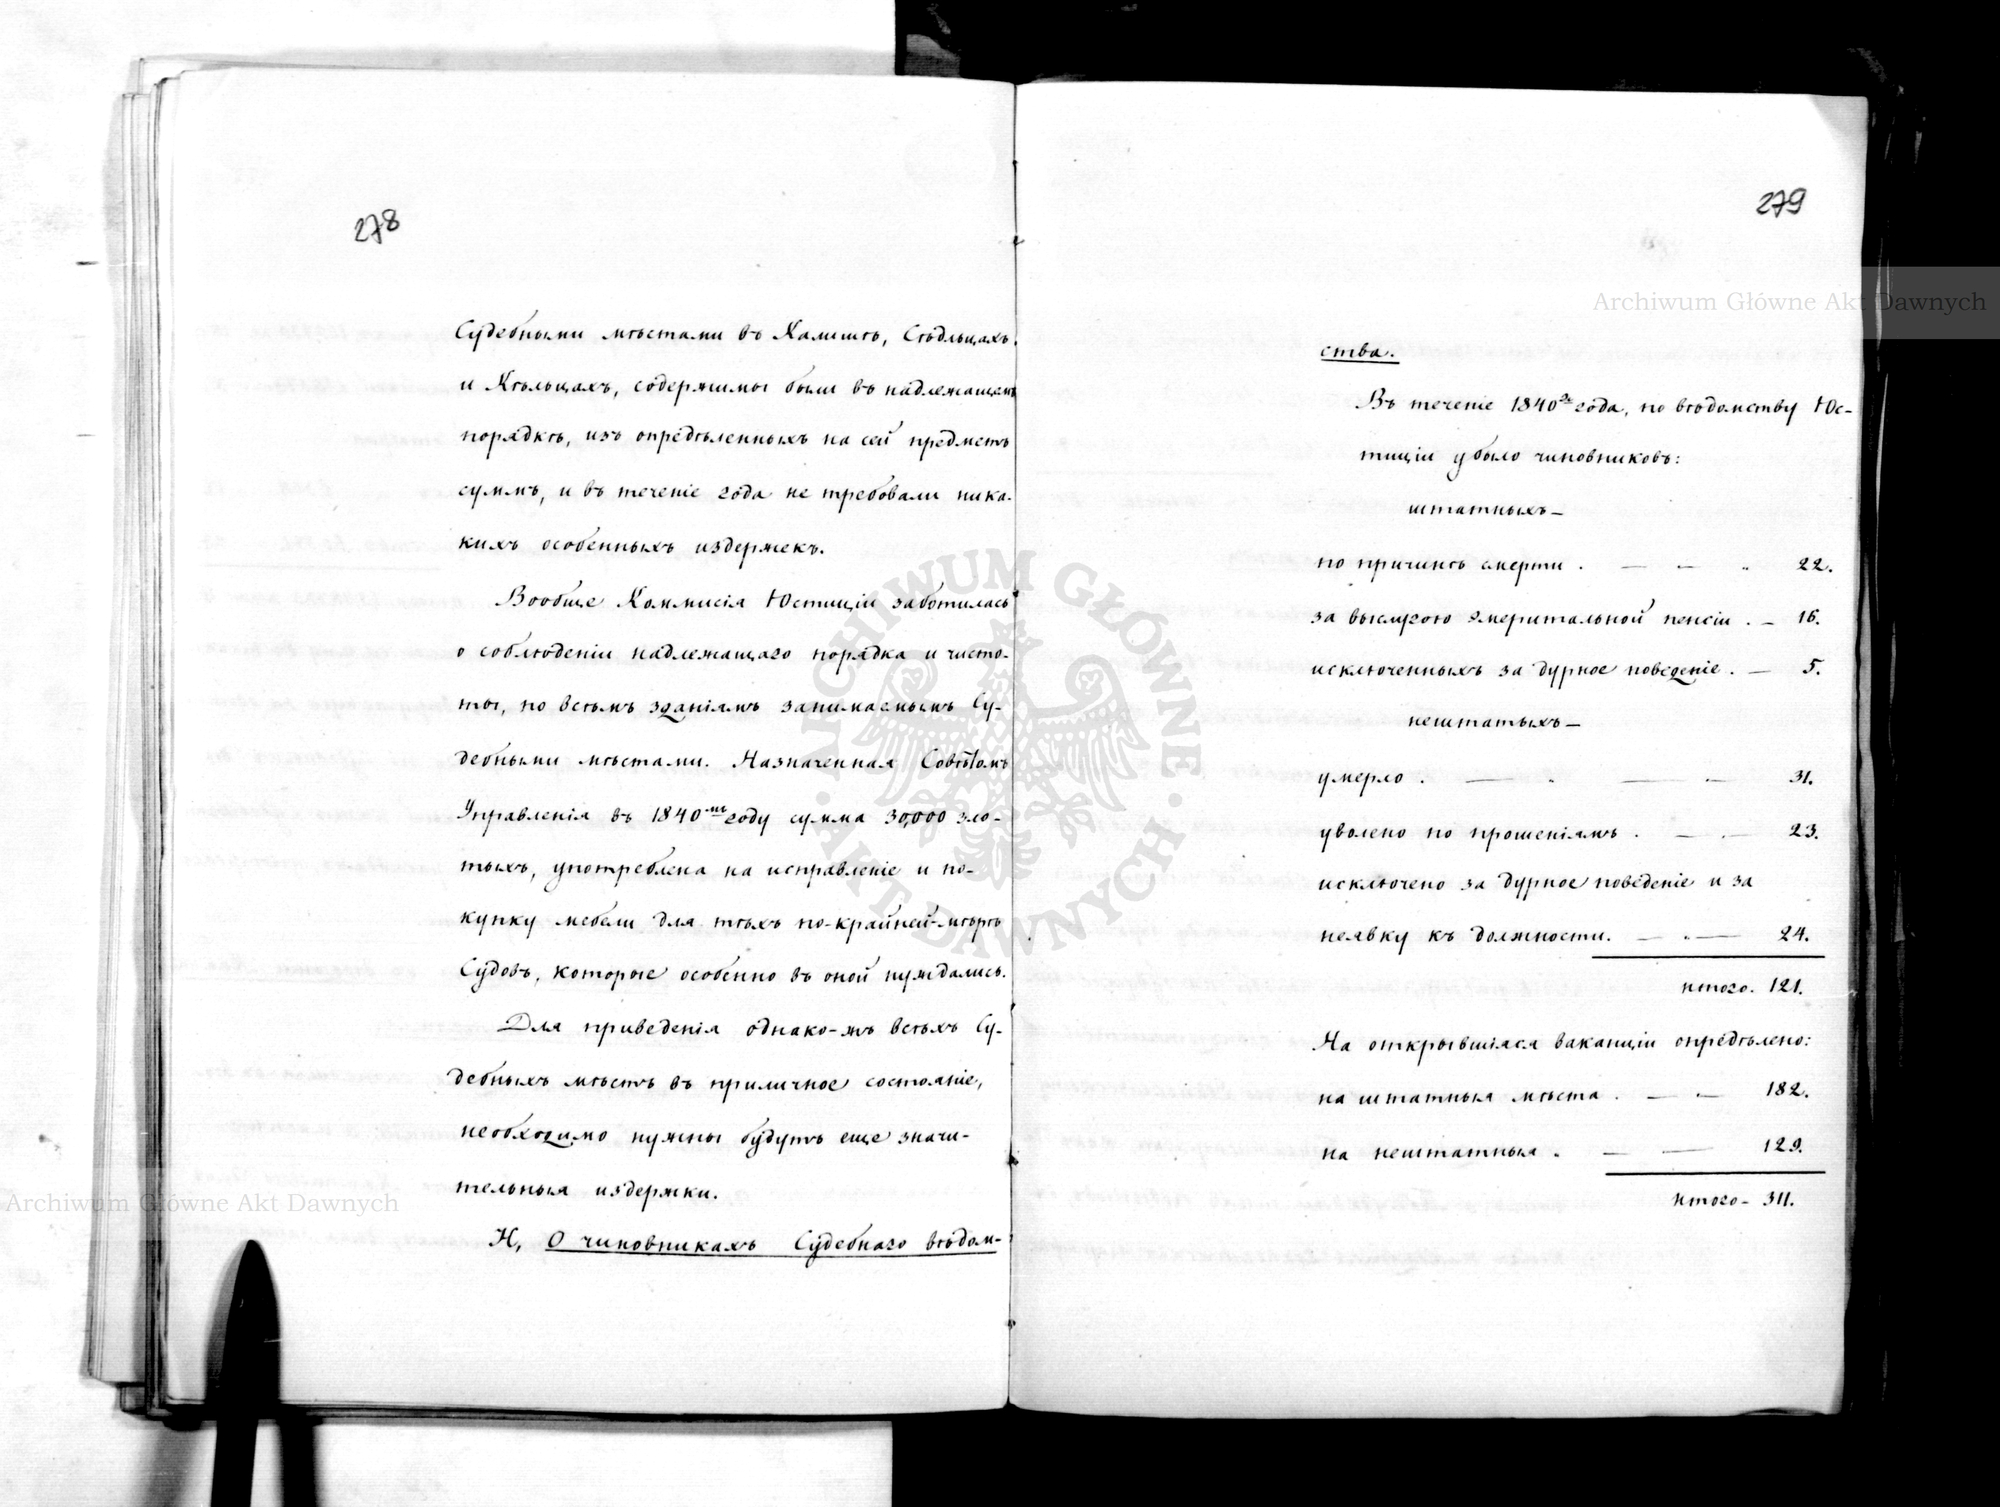 278
Судебными мѣстами въ Калишѣ, Сѣдльцахъ
и Кѣльцахъ, содержимы были въ надлежащемъ
порядкѣ, изъ опредѣленныхъ на сей предметъ
суммъ, и въ теченіе года не требовали ника-
кихъ особенныхъ издержекъ.
Вообще Коммисія Юстиціи заботилась
о соблюденіи надлежащаго порядка и чисто-
ты, по всѣмъ зданіямъ занимаемымъ Су-
дебными мѣстами. Назначенная Совѣтомъ
Управленія въ 1840мъ году сумма 30,000 зло-
тыхъ, употреблена на исправленіе и по-
купку мебели для тѣхъ по-крайней-мѣрѣ
Судовъ, которые особенно въ оной нуждались.
Для приведенія однако-жъ всѣхъ Су-
дебныхъ мѣстъ въ приличное состояніе,
необходимо нужны будутъ еще значи-
тельныя издержки.
Н, О чиновникахъ Судебнаго вѣдом-
279
ства.
Въ теченіе 1840го года, по вѣдомству Юс-
тиціи убыло чиновниковъ:
штатныхъ —
по причинѣ смерти . — — .. 22.
за выслугою эмеритальной пенсіи . — 16.
исключенныхъ за дурное поведеніе . — 5.
нештатыхъ —
умерло . — . — — 31.
уволено по прошеніямъ . — . — 23.
исключено за дурное поведеніе и за
неявку къ должности. — . — 24.
итого. 121.
На открывшіяся ваканціи опредѣлено:
на штатныя мѣста . — — 182.
на нештатныя . — — 129.
итого - 311.
Archiwum Główne Akt Dawnych
Archiwum Główne Akt Dawnych
ARCHIWUM GŁÓWNE · AKT DAWNYCH ·